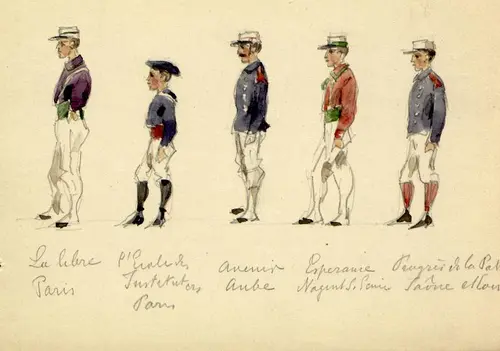 La libre
Paris
l'Ecole des
Instituteurs
Paris
Avenir
Aube
Esperance
Nogent S. Seine
Progrès de la Pat
Saône et Loir